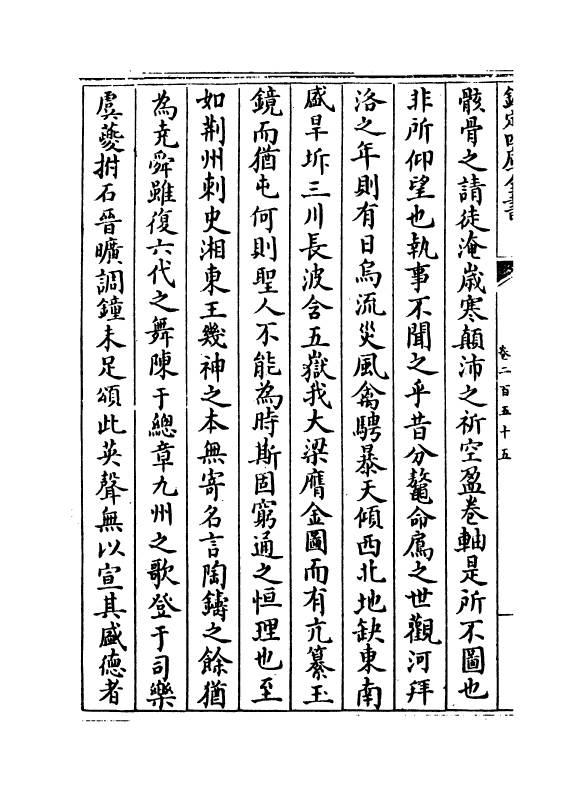 欽定四庫全書
卷二百五十五
骸骨之請徒淹歲寒顛沛之祈空盈卷軸是所不圖也
非所仰望也執事不聞之乎昔分鼇命鳸之世觀河拜
洛之年則有日烏流災風禽騁暴天傾西北地缺東南
盛旱坼三川長波含五嶽我大梁膺金圖而有亢纂玉
鏡而猶屯何則聖人不能為時斯固窮通之恒理也至
如荆州刺史湘東王幾神之本無寄名言陶鑄之餘猶
為堯舜雖復六代之舞陳于總章九州之歌登于司樂
虞夔拊石晉曠調鐘未足頌此英聲無以宣其盛德者